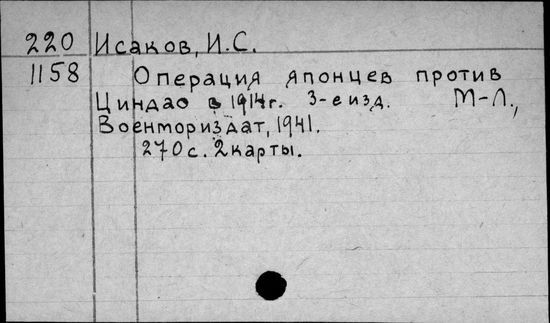 220 Исаков, И.С.
1158 Операция японцев против
Циндао в 1914г. 3-е изд. М-Л.,
Военмориздат, 1941.
270с. 2карты.